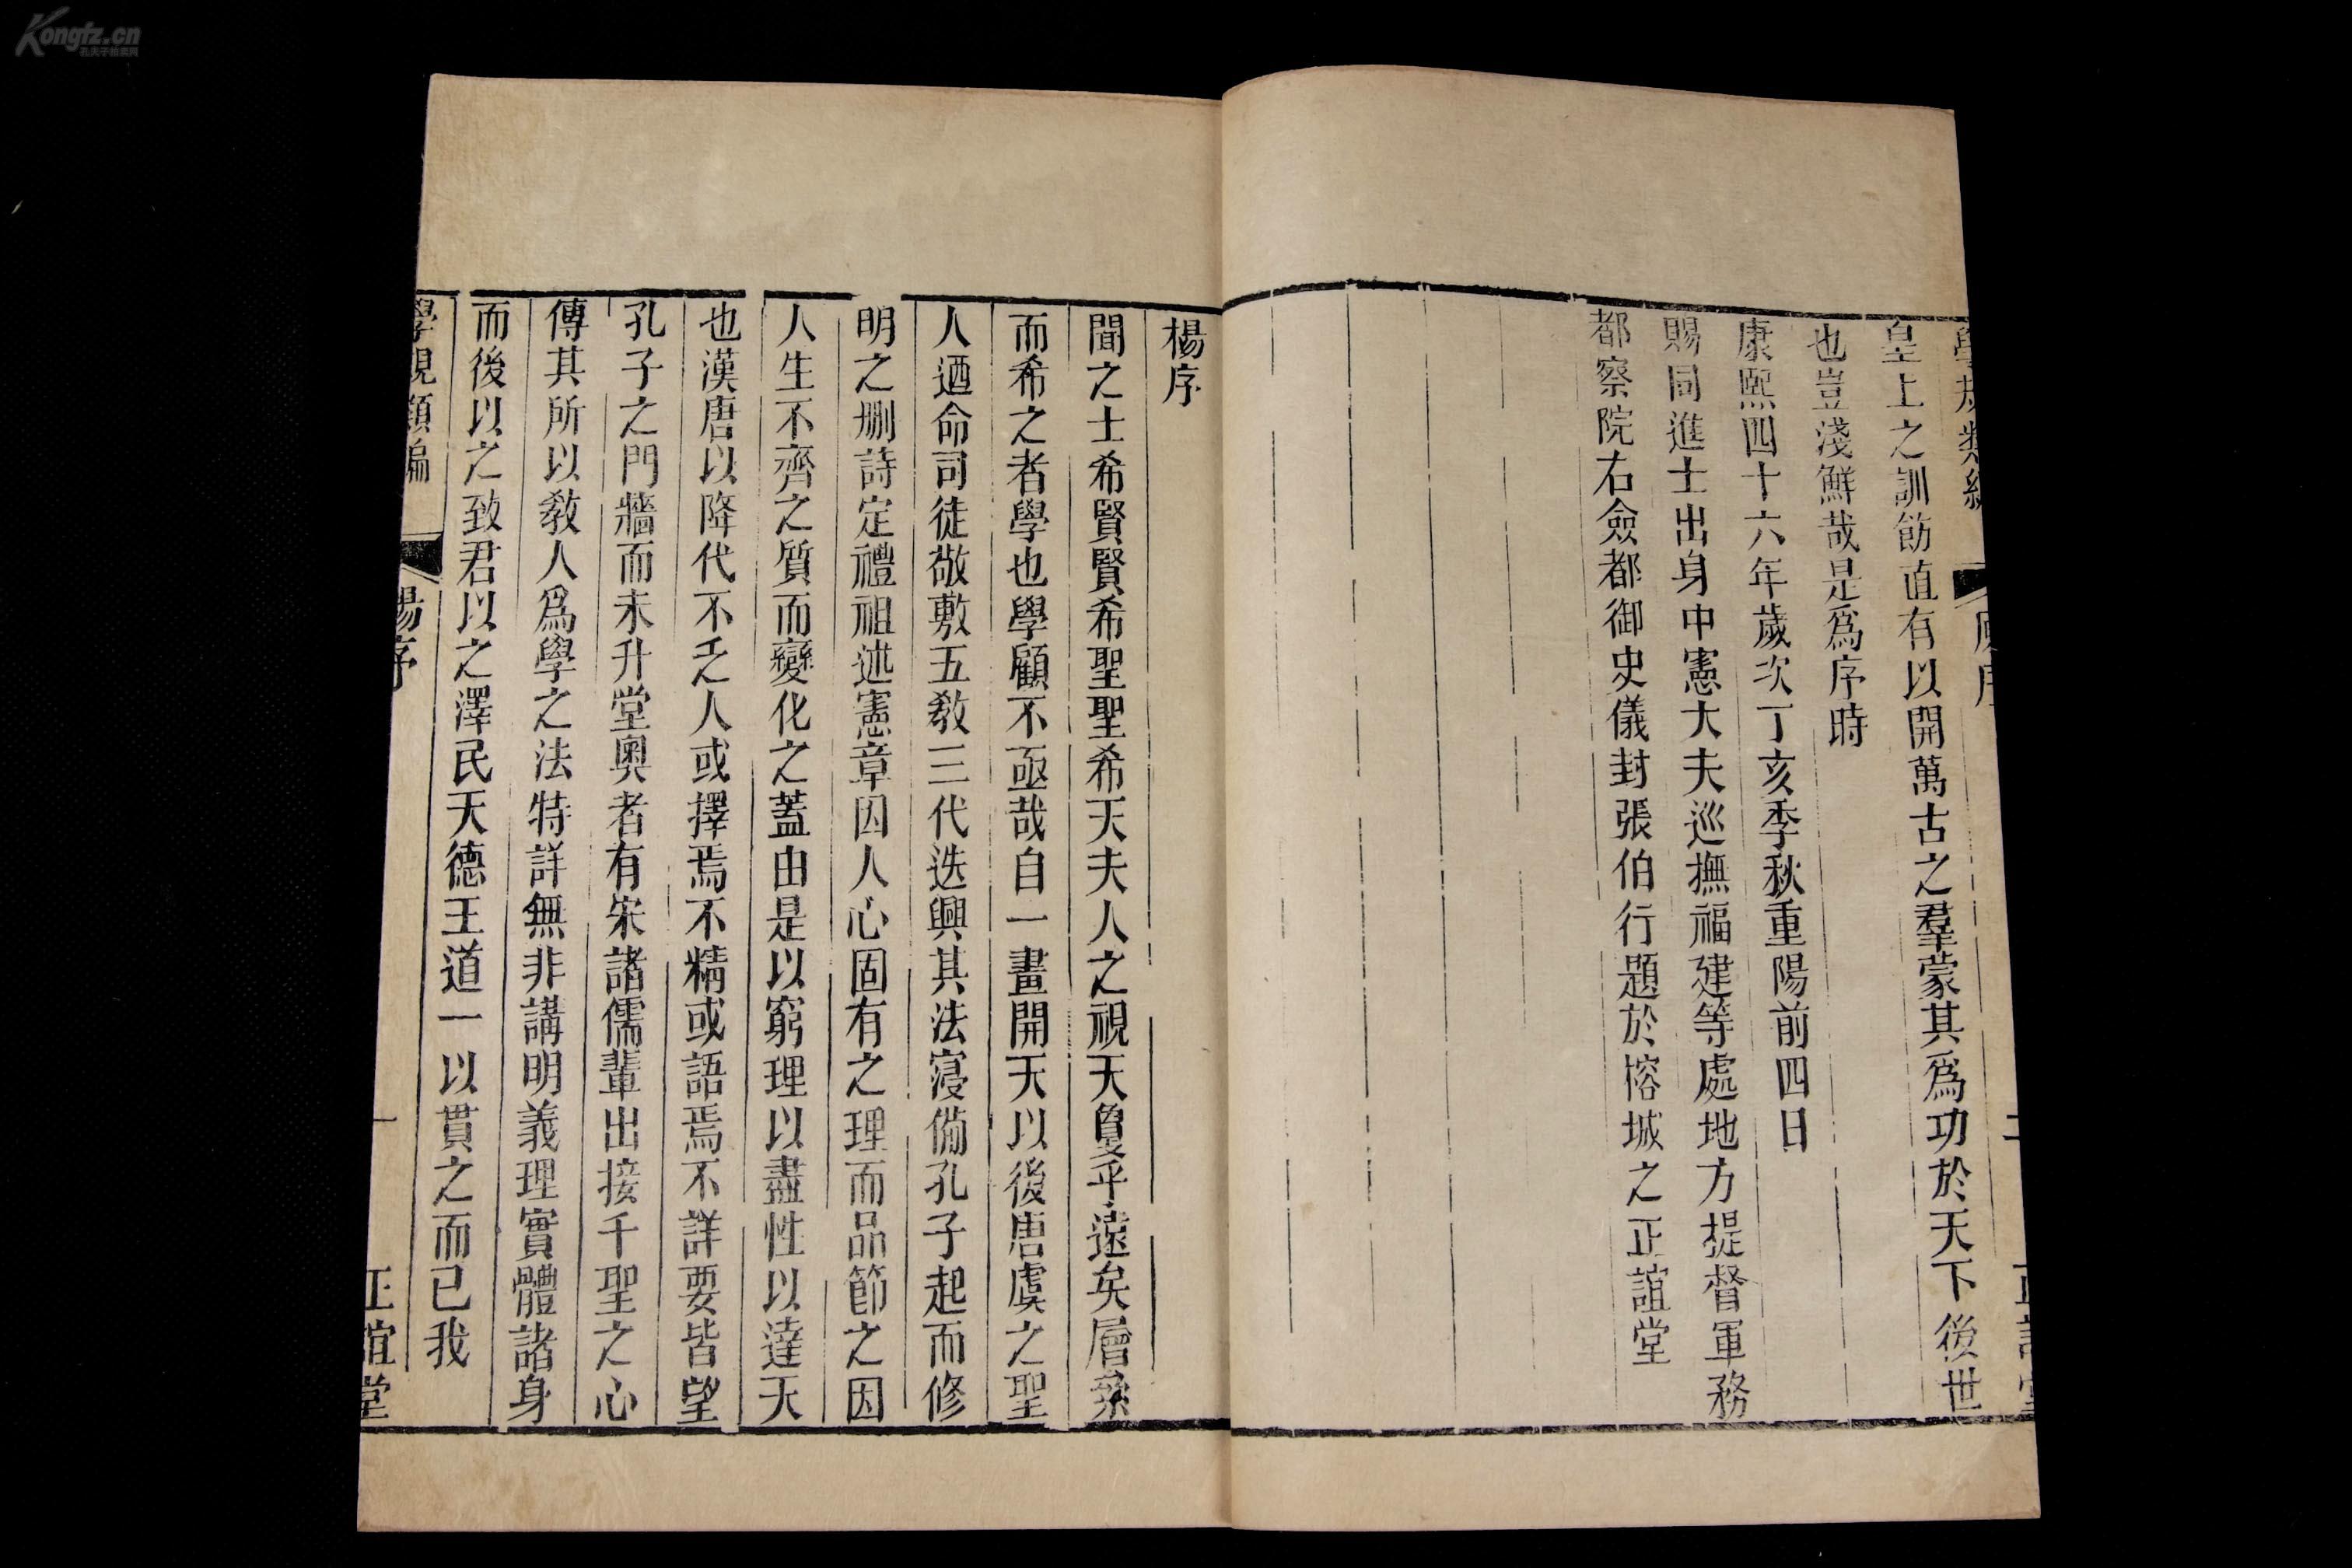 Kongfz.cn
孔夫子拍卖网
皇上之訓飭直有以開萬古之羣蒙其爲功於天下後世
也豈淺鮮哉是爲序時
康熙四十六年歲次丁亥季秋重陽前四日
賜同進士出身中憲大夫巡撫福建等處地方提督軍務
都察院右僉都御史儀封張伯行題於榕城之正誼堂
楊序
聞之士希賢賢希聖聖希天夫人之視天敻乎遠矣層絫
而希之者學也學顧不亟哉自一畫開天以後唐虞之聖
人迺命司徒敬敷五敎三代迭興其法寖備孔子起而修
明之刪詩定禮祖述憲章因人心固有之理而品節之因
人生不齊之質而變化之蓋由是以窮理以盡性以達天
也漢唐以降代不乏人或擇焉不精或語焉不詳要皆望
孔子之門牆而未升堂奧者有宋諸儒輩出接千聖之心
傳其所以敎人爲學之法特詳無非講明義理實體諸身
而後以之致君以之澤民天德王道一以貫之而已我
學規類編
楊序
一
正誼堂